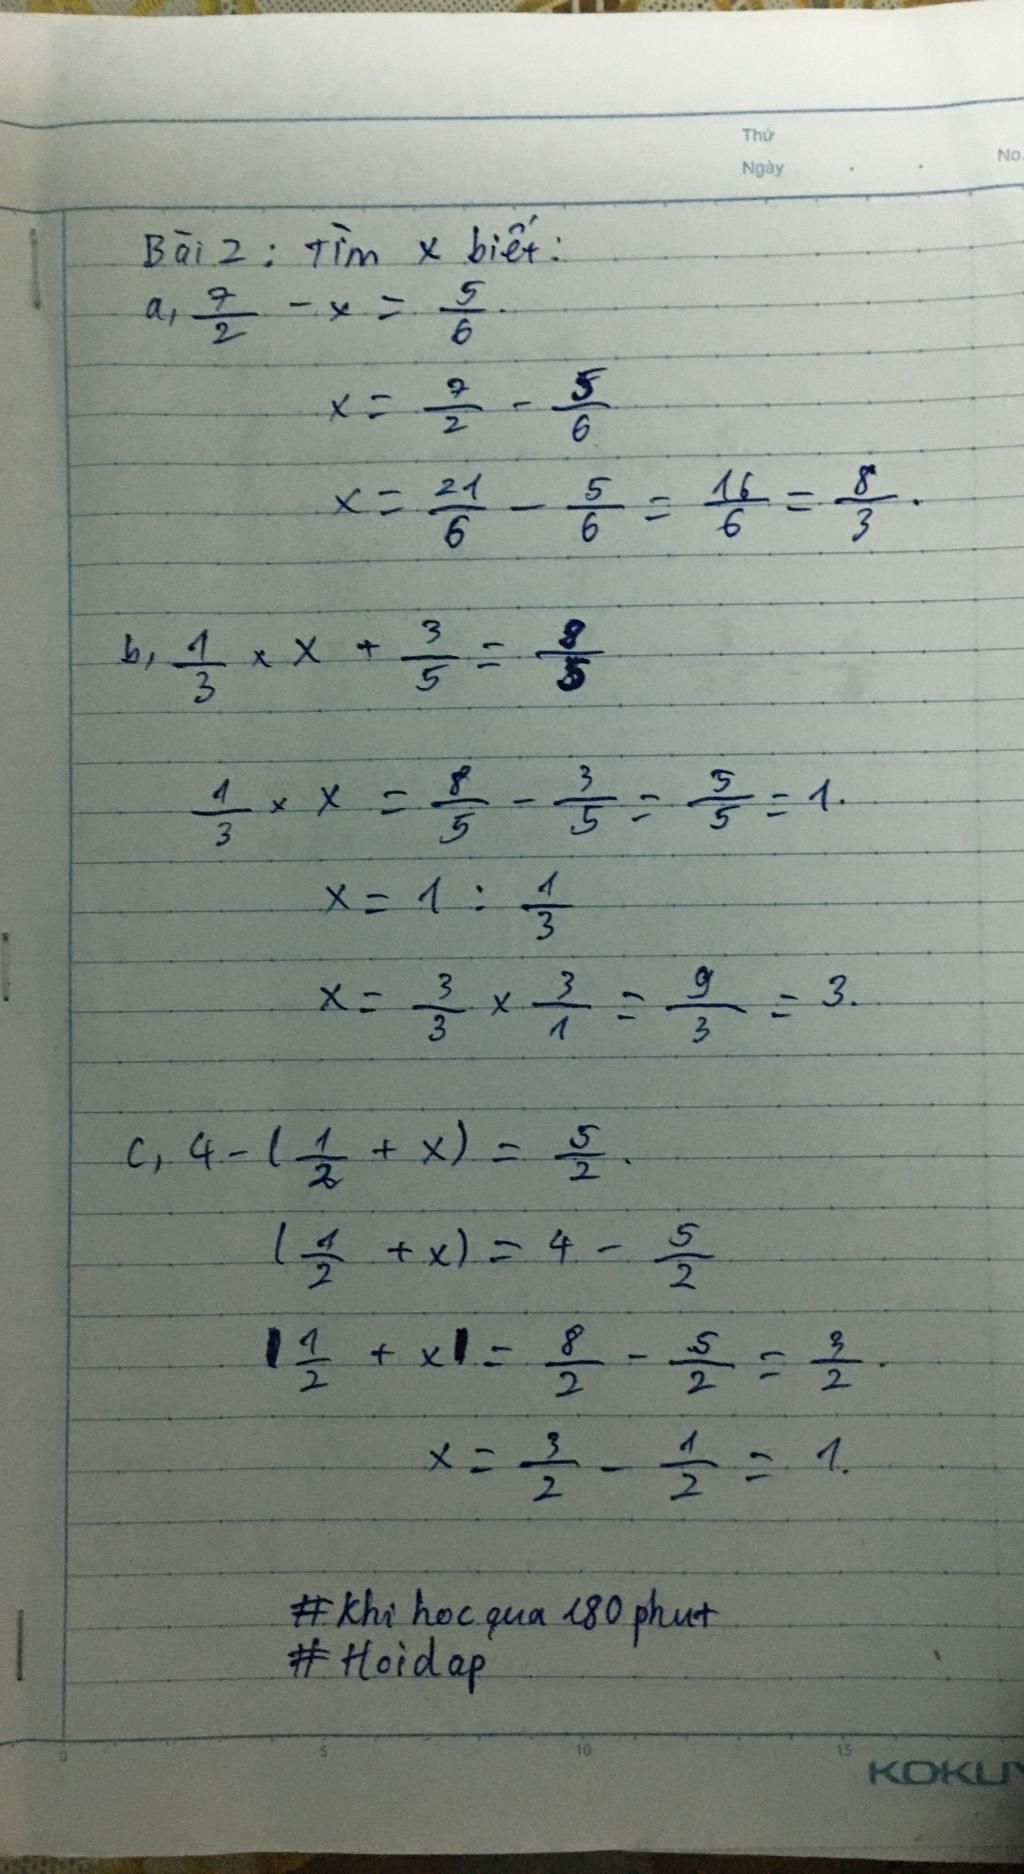 Thứ
Ngày . . No.
Bài 2 : Tìm x biết :
a, 7/2 - x = 5/6 .
x = 7/2 - 5/6
x = 21/6 - 5/6 = 16/6 = 8/3 .
b, 1/3 × x + 3/5 = 8/5
1/3 × x = 8/5 - 3/5 = 5/5 = 1.
x = 1 : 1/3
x = 3/3 × 3/1 = 9/3 = 3.
c, 4 - ( 1/2 + x ) = 5/2 .
( 1/2 + x ) = 4 - 5/2
1/2 + x = 8/2 - 5/2 = 3/2 .
x = 3/2 - 1/2 = 1.
# Khi hoc qua 180 phut
# Hoidap
0 5 10 15